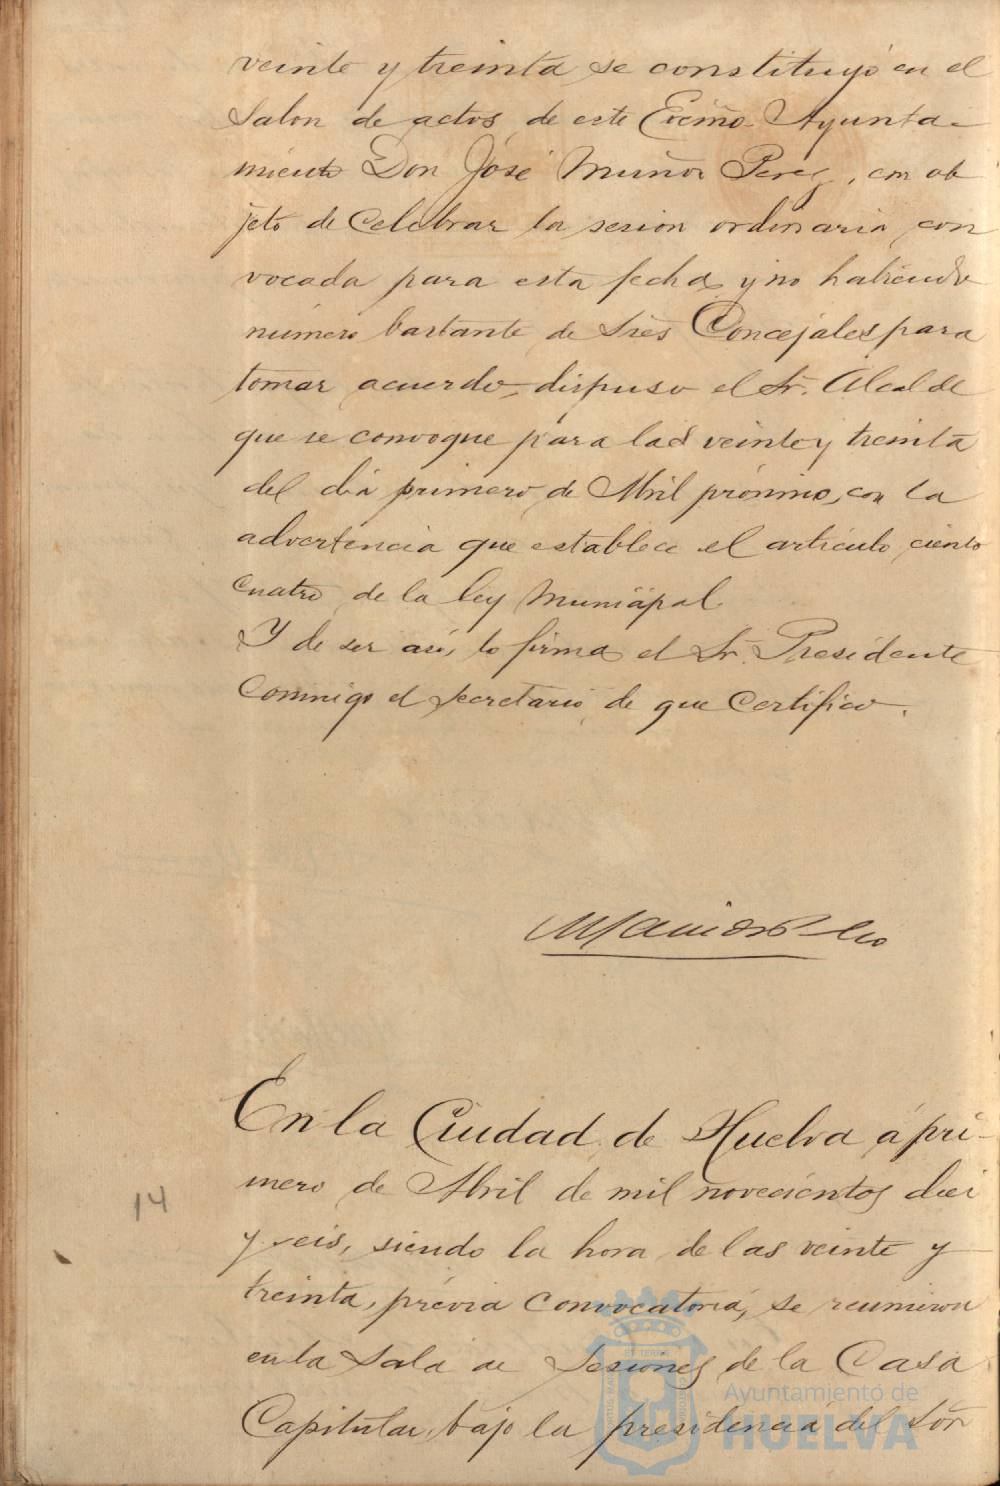 veinte y treinta, se constituyó en el
Salon de actos, de este Excmo. Ayunta-
miento Don José Muñoz Perez, con ob
jeto de celebrar la sesion ordinaria, con
vocada para esta fecha, y no habiendo
número bastante de Sres Concejales para
tomar acuerdo, dispuso el Sr. Alcalde
que se convoque para las veinte y treinta
del dia primero, de Abril próximo, con la
advertencia que establece el articulo, ciento
cuatro, de la ley Municipal.
Y de ser asi, lo firma el Sr. Presidente
conmigo el Secretario, de que Certifico.
En la Ciudad de Huelva á pri-
mero de Abril de mil novecientos dieci
14
y seis, siendo la hora de las veinte y
treinta, prévia convocatoria, se reunieron
en la Sala de Sesiones de la Casa
Capitular, bajo la presidencia del Sor
Ayuntamiento de
HUELVA